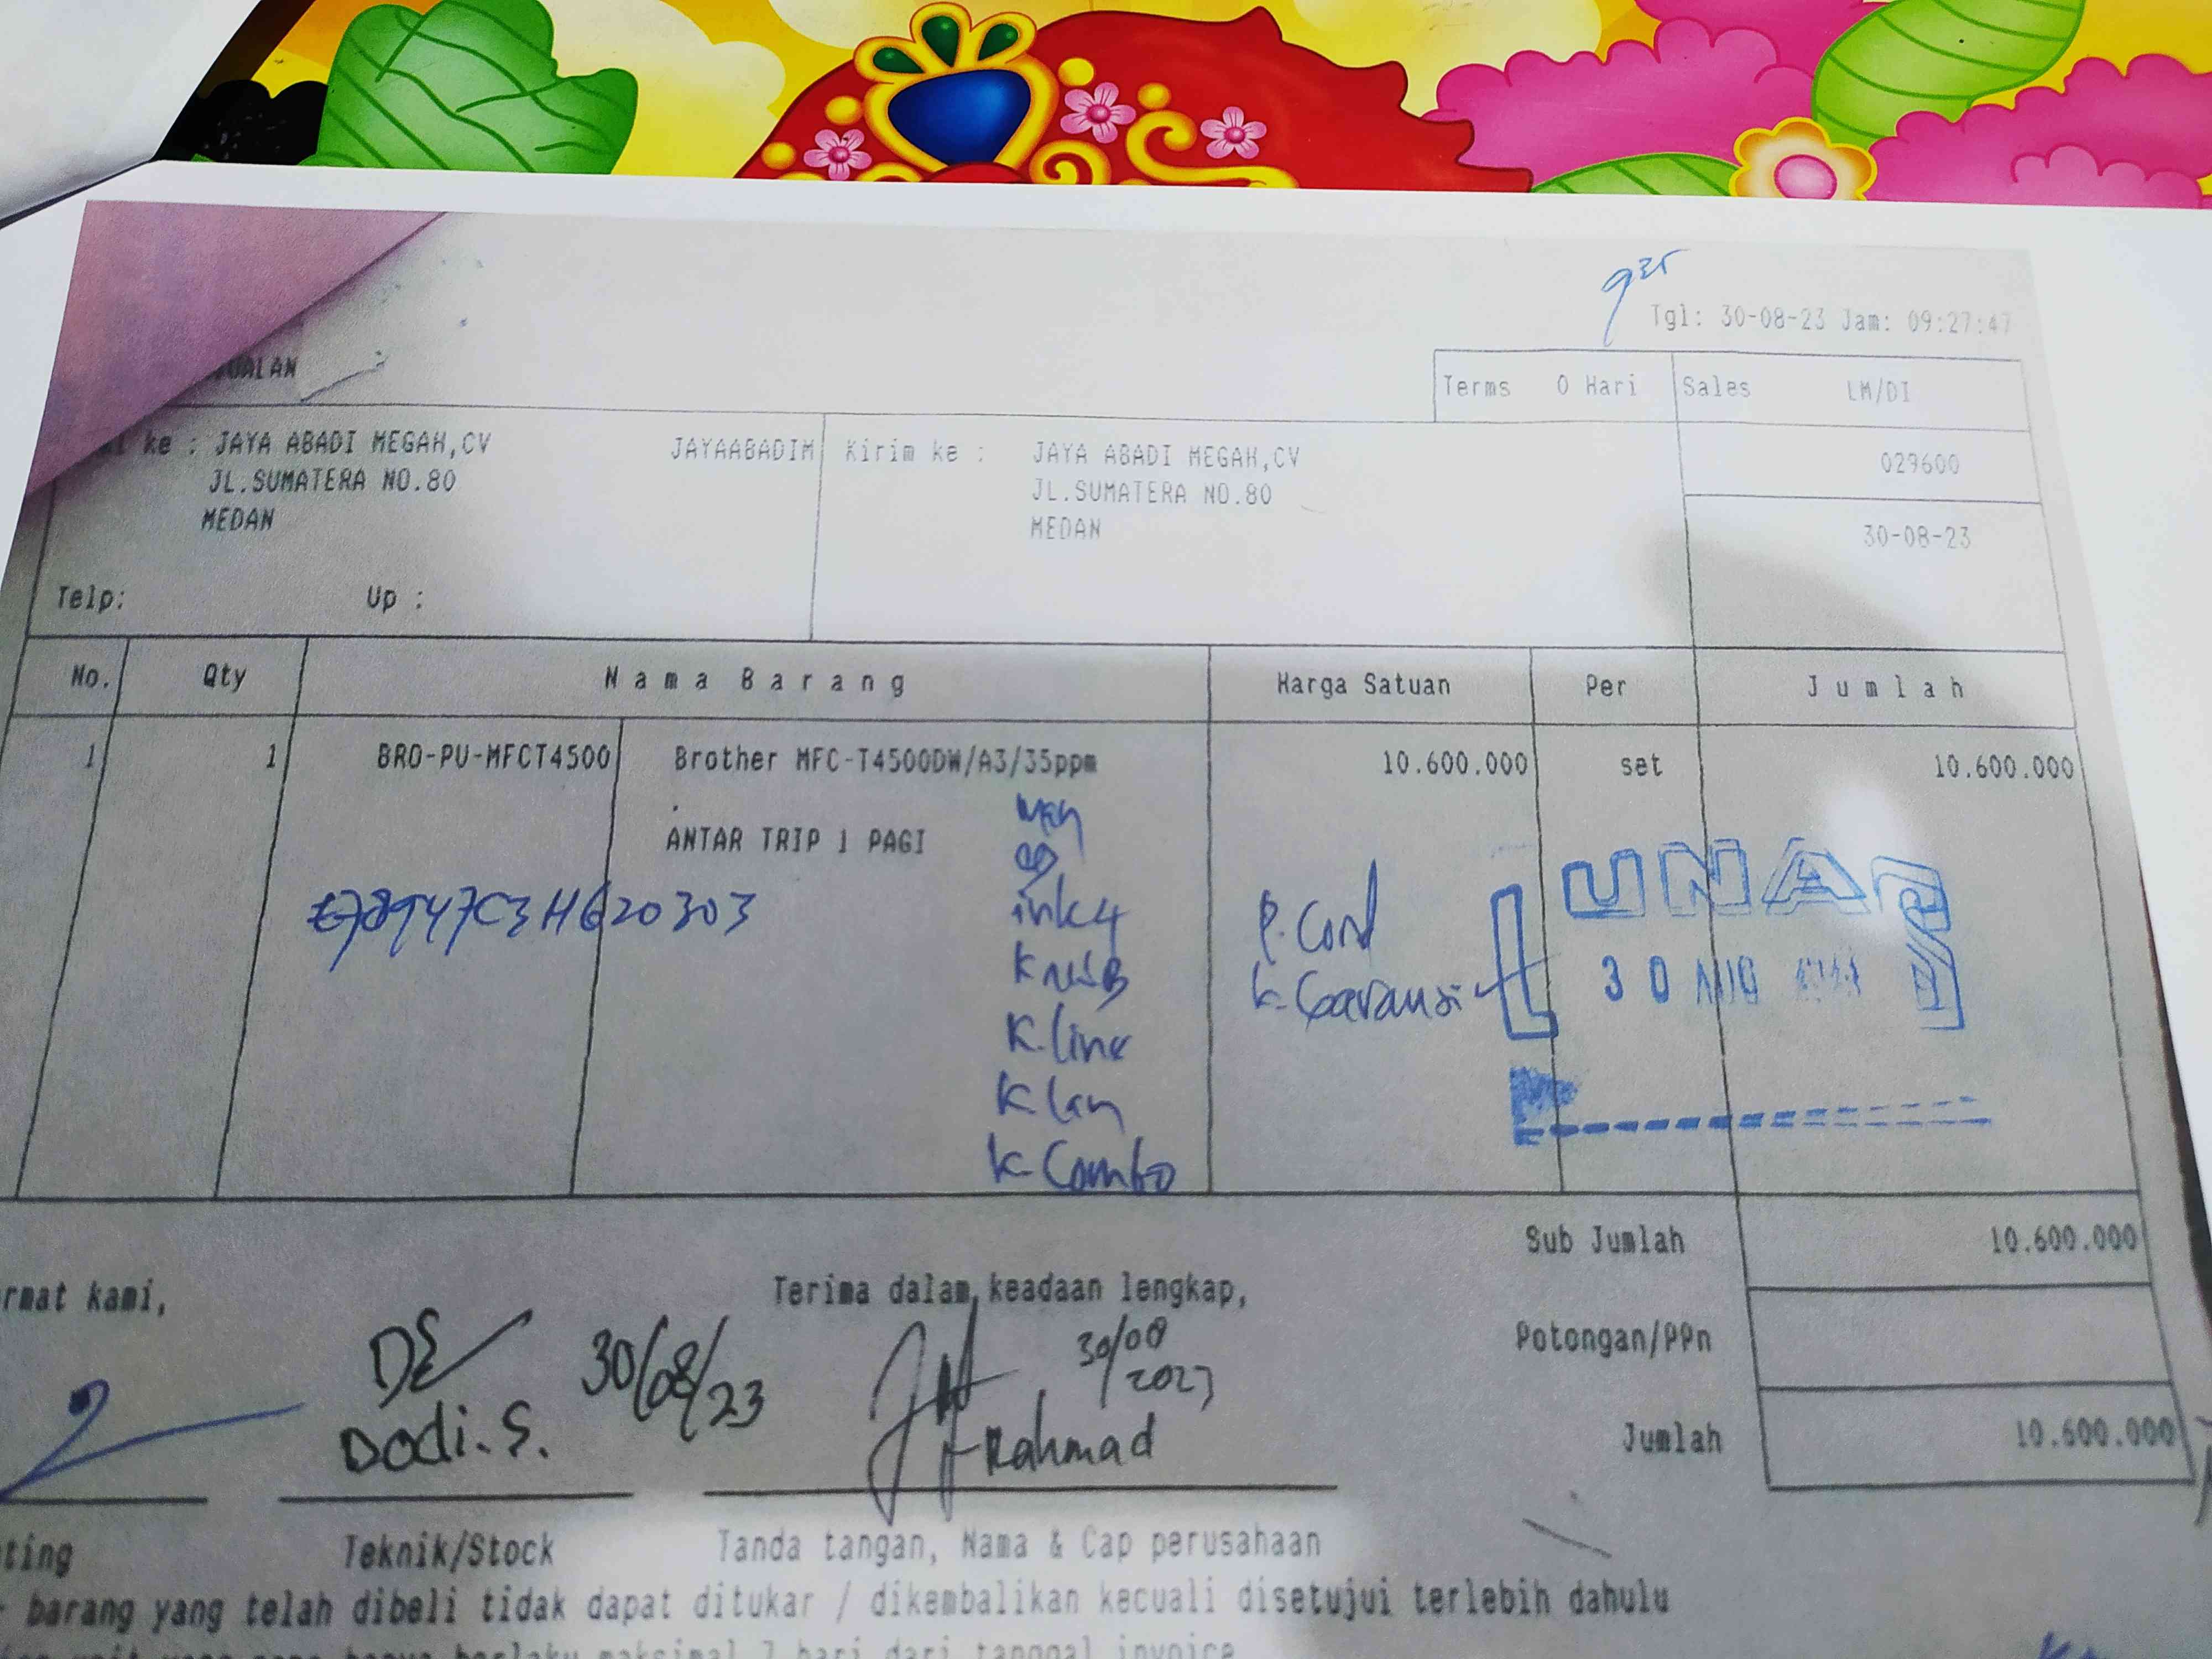 Tgl: 30-08-23 Jam: 09:27:47
UALAN
Terms 0 Hari Sales LM/DI
ke : JAYA ABADI MEGAH,CV JAYAABADIM
JL.SUMATERA NO.80
MEDAN
Telp: Up :
Kirim ke : JAYA ABADI MEGAH,CV
JL.SUMATERA NO.80
MEDAN
029600
30-08-23
No. Qty Nama Barang Harga Satuan Per Jumlah
1 1 BRO-PU-MFCT4500 Brother MFC-T4500DW/A3/35ppm 10.600.000 set 10.600.000
ANTAR TRIP 1 PAGI
ink4
K USB
K.line
K lan
K-Combo
P. Cord
K-Garansi
LUNAS
30 AUG
Sub Jumlah 10.600.000
Potongan/PPn
Jumlah 10.600.000
rmat kami,
Terima dalam keadaan lengkap,
Dodi.S. 30/08/23
30/08/2023
Rahmad
ting Teknik/Stock Tanda tangan, Nama & Cap perusahaan
barang yang telah dibeli tidak dapat ditukar / dikembalikan kecuali disetujui terlebih dahulu
maksimal 7 hari dari tanggal invoice